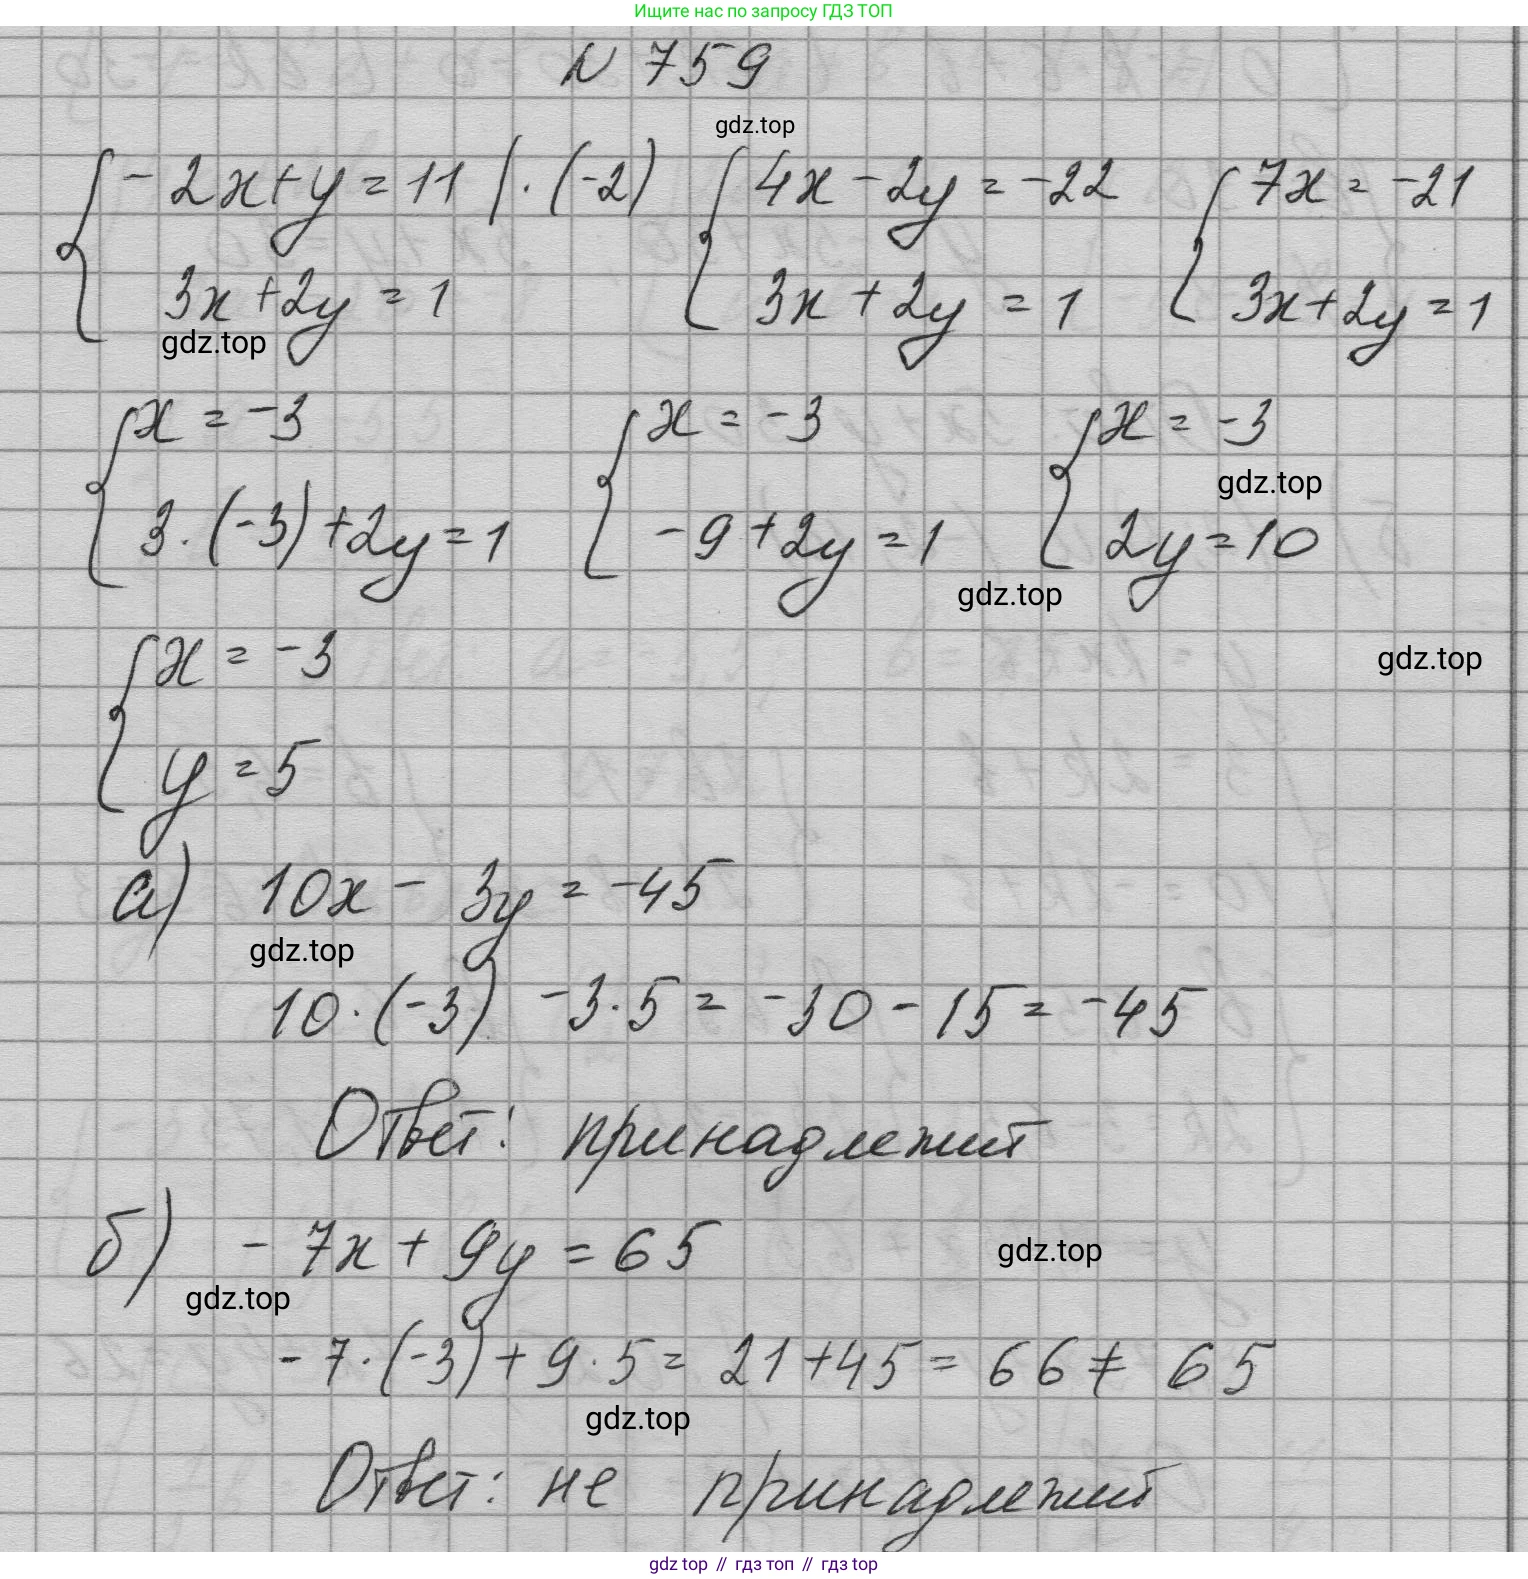 Ищите нас по запросу ГДЗ ТОП
N 759
gdz.top
{ -2x+y=11 |·(-2) { 4x-2y=-22 { 7x=-21
3x+2y=1 3x+2y=1 3x+2y=1
gdz.top
{ x=-3 { x=-3 { x=-3
gdz.top
3·(-3)+2y=1 -9+2y=1 2y=10
gdz.top
{ x=-3
gdz.top
y=5
а) 10x-3y=-45
gdz.top
10·(-3)-3·5=-30-15=-45
Ответ: принадлежит
б) -7x+9y=65
gdz.top
gdz.top
-7·(-3)+9·5=21+45=66≠65
gdz.top
Ответ: не принадлежит
gdz top // гдз топ // гдз top